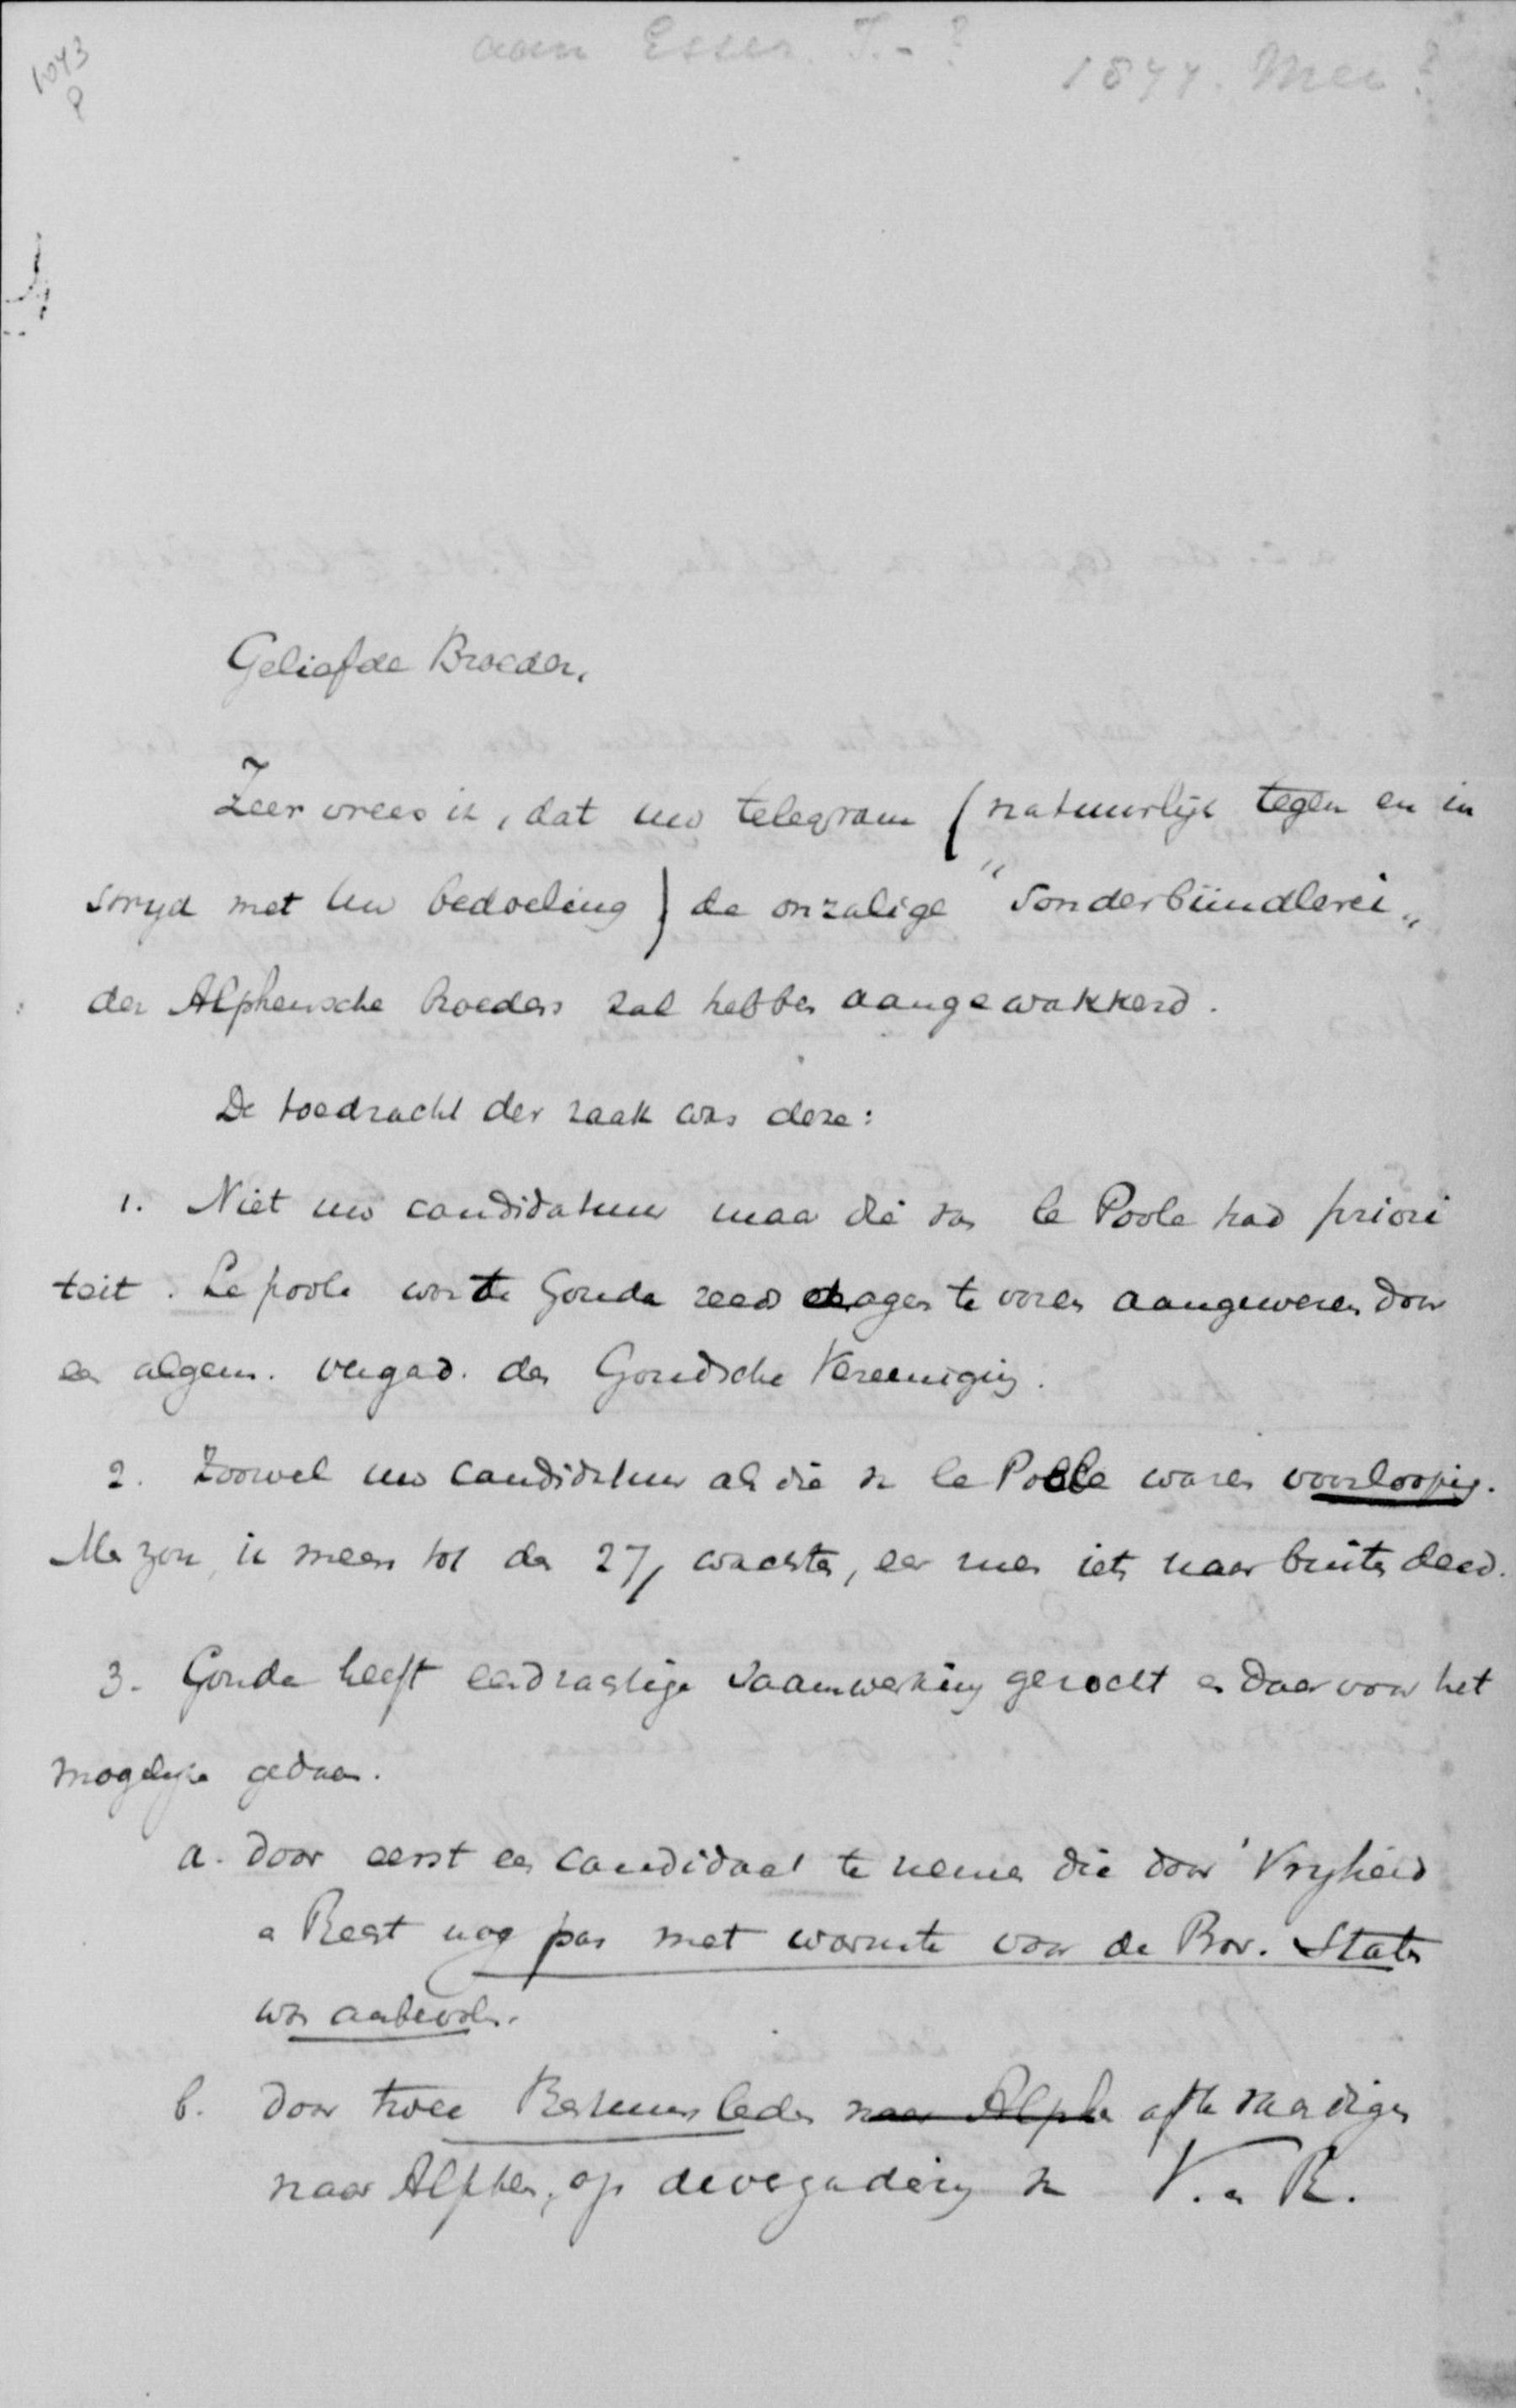 1043
P
aan Esser. I. - ?
1877. Mei ?
Geliefde Broeder,
Zeer vrees ik, dat uw telegram (natuurlijk tegen en in
stryd met Uw bedoeling) de onzalige "Sonderbündlerei"
der Alphensche broeders zal hebben aangewakkerd.
De toedracht der zaak was deze:
1. Niet uw candidatuur maar die van le Poole had priori
teit. Le poole was te Gouda reeds dagen te voren aangewezen door
een algem. vergad. der Goudsche Vereeniging.
2. Zoowel uw candidatuur als die v le Poole waren voorloopig.
Me zou, ik meen tot den 27/ wachten, eer men iets naar buiten deed.
3. Gouda heeft eendrachtige saamwerking gezocht en daarvoor het
mogelyke gedaan.
a. door eerst een candidaat te nemen die door 'Vryheid
en Regt nog pas met warmte voor de Prov. Staten
was aanbevolen.
b. door twee Bestuursleden naar Alphe af te vaardigen
naar Alphen, op de vergadering v V. en R.